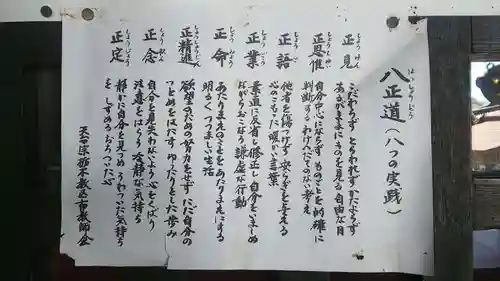 八正道（八つの実践）
はっしょうどう
正見
しょうけん
こだわらず とらわれず かたよらず
ありがままにものを見る 自由な目
正思惟
しょうしゆい
自分中心にならず ものごとを的確に
判断する わけへだてのない考え
正語
しょうご
他者を傷つけず 安らぎを与える
心のこもった 暖かい言葉
正業
しょうごう
素直に反省し修正し 自分をいましめ
ながらおこなう 謙虚な行動
正命
しょうみょう
あたりまえのことを あたりまえにする
明るく つつましい生活
正精進
しょうしょうじん
欲望のための努力をせず ただ自分の
つとめをはたす ゆったりとした歩み
正念
しょうねん
自分を見失わないよう 心をくばり
注意をはらう 冷静な気持ち
正定
しょうじょう
静かに自分を見つめ うわついた気持ち
を しずめる おちついた心
天台宗栃木教区布教師会